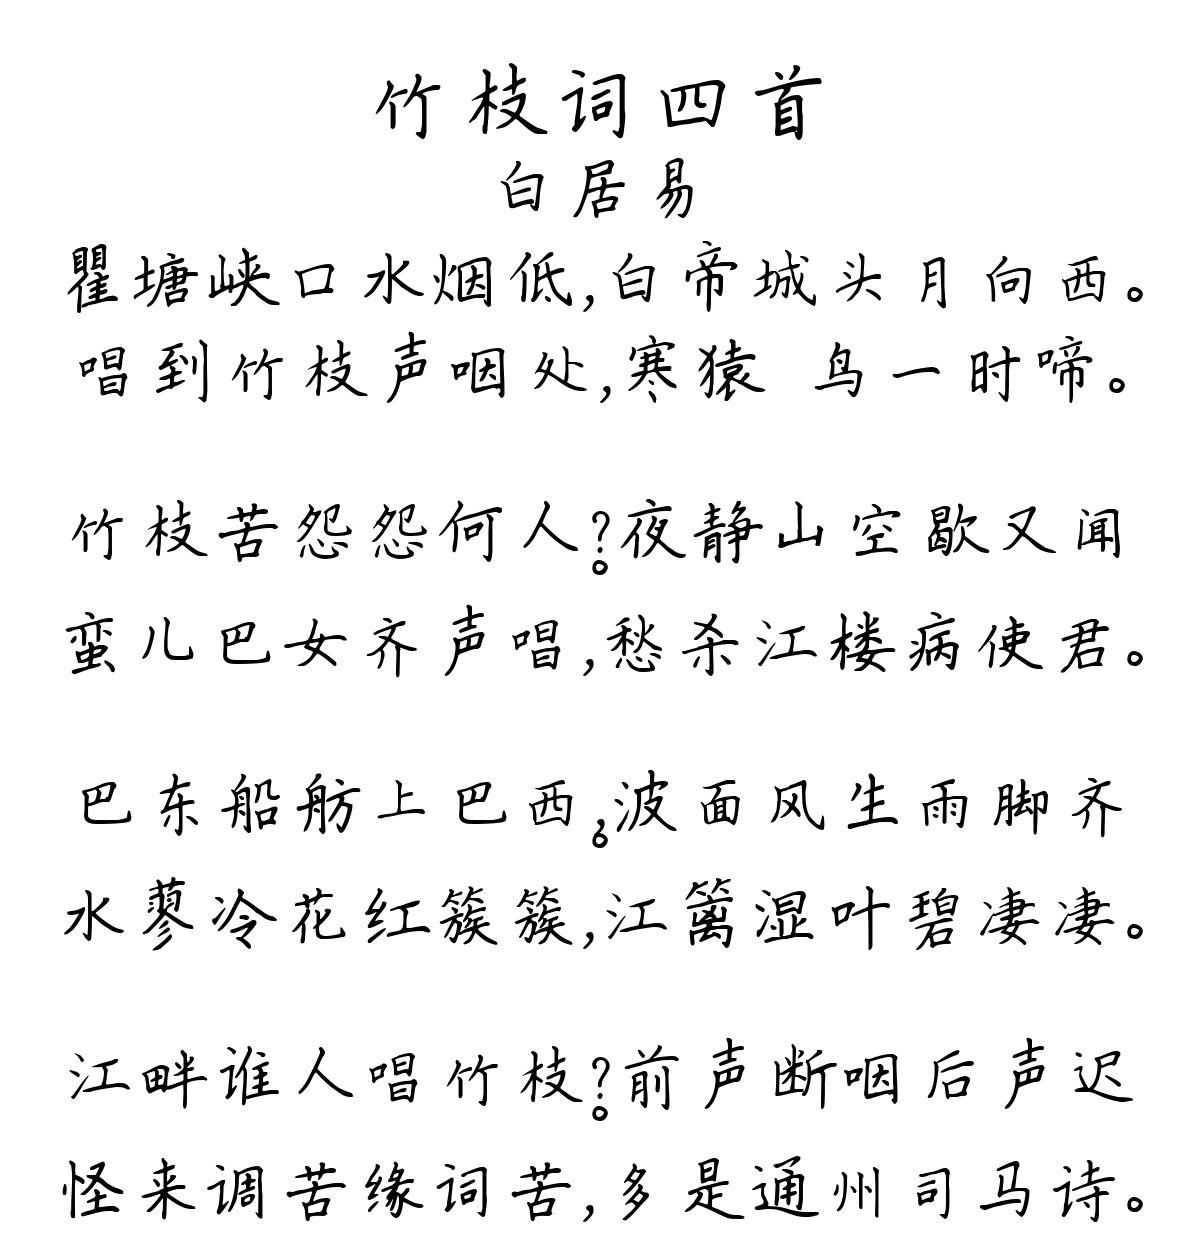 竹枝词四首
白居易
瞿塘峡口水烟低,白帝城头月向西。
唱到竹枝声咽处,寒猿 鸟一时啼。
竹枝苦怨怨何人?。夜静山空歇又闻
蛮儿巴女齐声唱,愁杀江楼病使君。
巴东船舫上巴西,。波面风生雨脚齐
水蓼冷花红簇簇,江篱湿叶碧凄凄。
江畔谁人唱竹枝?。前声断咽后声迟
怪来调苦缘词苦,多是通州司马诗。